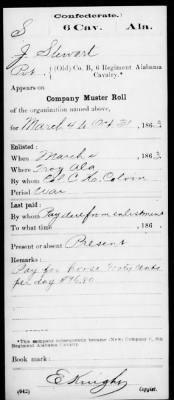 Confederate.
S 6 Cav. Ala.
J Stewart
Pvt, (Old) Co. B, 6 Regiment Alabama
Cavalry.*
Appears on
Company Muster Roll
of the organization named above,
for March 4 to Oct 31, 1863
Enlisted:
When March 4, 1863
Where Troy Ala
By whom C.
Period War
Last paid:
By whom Pay due from enlistment
To what time , 186
Present or absent Present
Remarks:
Pay for horse
per day $96.80
*This company subsequently became (New) Company
Regiment Alabama Cavalry.
Book mark:
E Knight
(642) Copyist.